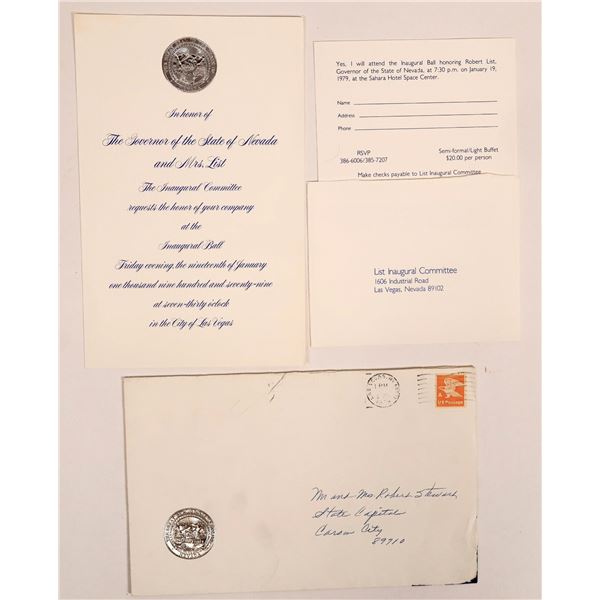 In honor of
The Governor of the State of Nevada
and Mrs. List
The Inaugural Committee
requests the honor of your company
at the
Inaugural Ball
Friday evening, the nineteenth of January
one thousand nine hundred and seventy-nine
at seven-thirty o'clock
in the City of Las Vegas
Yes, I will attend the Inaugural Ball honoring Robert List,
Governor of the State of Nevada, at 7:30 p.m. on January 19,
1979, at the Sahara Hotel Space Center.
Name
Address
Phone
RSVP
386-6006/385-7207
Semi-formal/Light Buffet
$20.00 per person
Make checks payable to List Inaugural Committee
List Inaugural Committee
1606 Industrial Road
Las Vegas, Nevada 89102
PM
A
US Postage
Mr and Mrs Robert Stewart
State Capitol
Carson City
89710